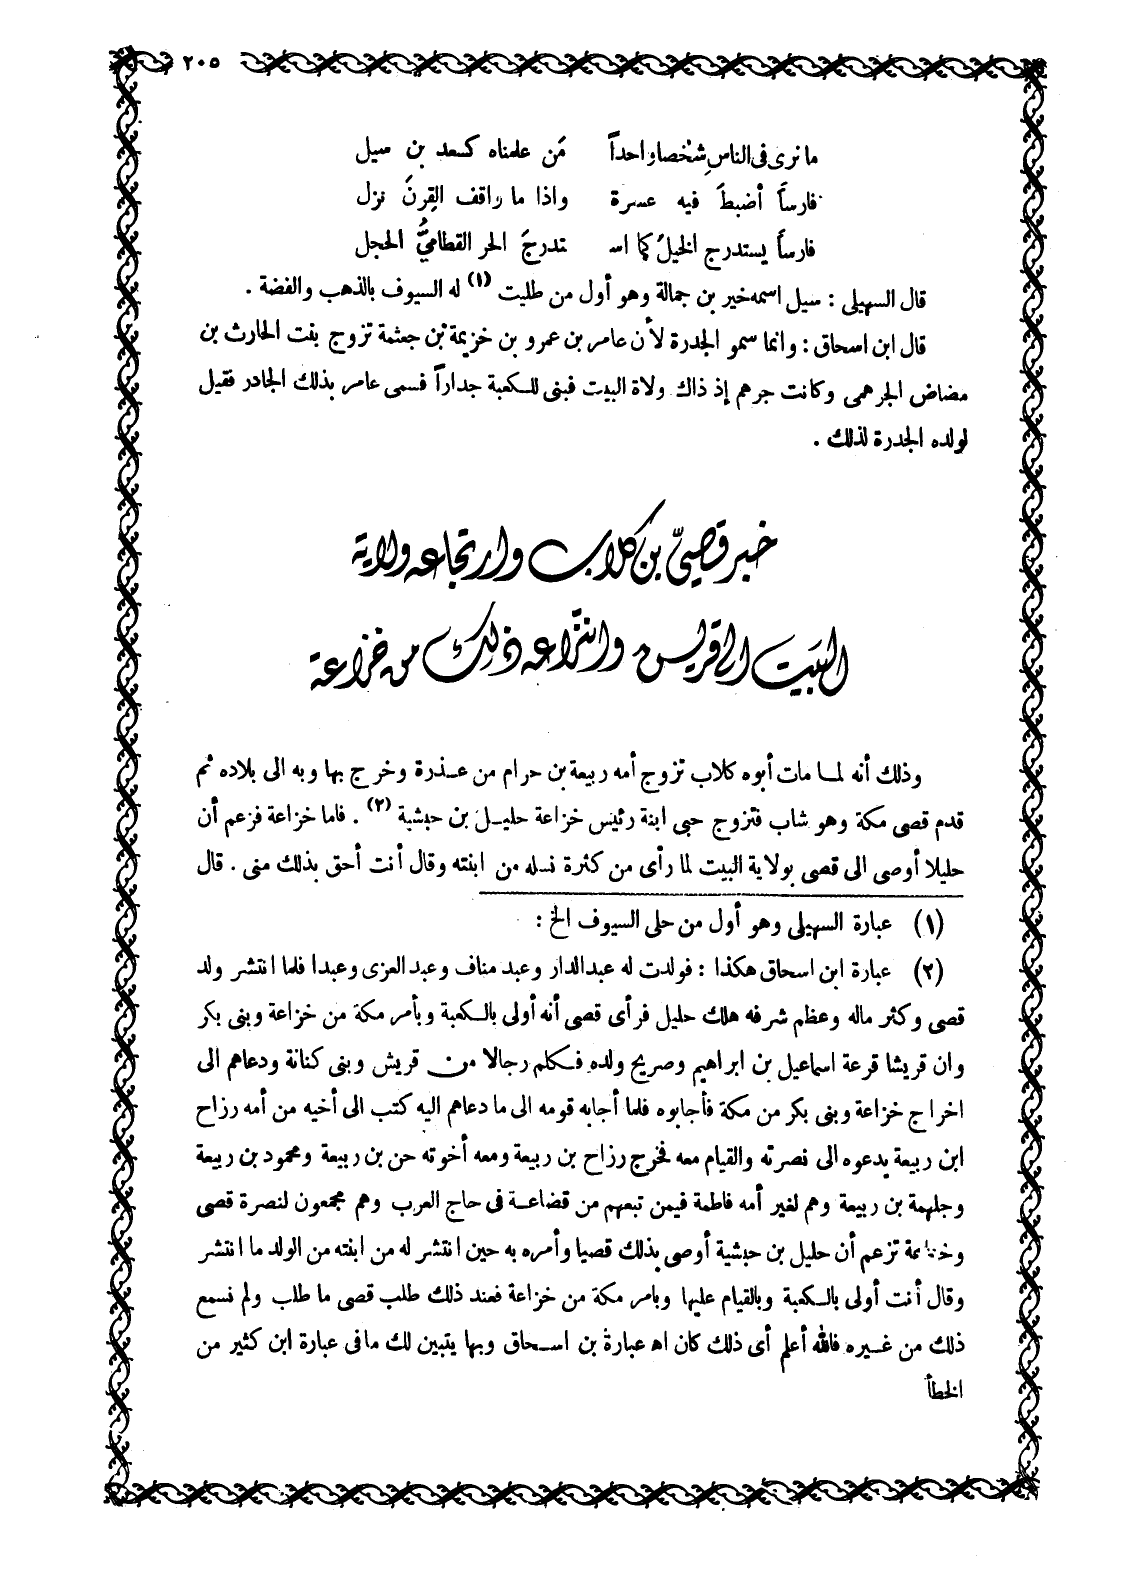 ٢٠٥
ما نرى فى الناسِ شخصا واحداً مَن علمناه كسعد بن سيل
فارساً أضبطَ فيه عسرة واذا ما راقف القِرنَ نزل
فارساً يستدرج الخيلَ كما اسـ تدرجَ الحر القطاميُّ الحجل
قال السهيلى : سيل اسمه خير بن جمالة وهو أول من طليت (١) له السيوف بالذهب والفضة .
قال ابن اسحاق : وانما سمو الجدرة لأن عامر بن عمرو بن خزيمة بن جعثمة تزوج بفت الحارث بن
مضاض الجرهمى وكانت جرهم إذ ذاك ولاة البيت فبنى للكعبة جداراً فسمى عامر بذلك الجادر فقيل
لولده الجدرة لذلك .
خبر قصيّ بن كلاب وارتجاعه ولاية
البيت الى قريش وانتزاعه ذلك من خزاعة
وذلك أنه لما مات أبوه كلاب تزوج أمه ربيعة بن حرام من عذرة وخرج بها وبه الى بلاده ثم
قدم قصى مكة وهو شاب فتزوج حبى ابنة رئيس خزاعة حليل بن حبشية (٢) . فاما خزاعة فزعم أن
حليلا أوصى الى قصى بولاية البيت لما رأى من كثرة نسله من ابنته وقال أنت أحق بذلك منى . قال
(١) عبارة السهيلى وهو أول من حلى السيوف الخ :
(٢) عبارة ابن اسحاق هكذا : فولدت له عبدالدار وعبد مناف وعبد العزى وعبدا فلما انتشر ولد
قصى وكثر ماله وعظم شرفه هلك حليل فرأى قصى أنه أولى بالكعبة وبأمر مكة من خزاعة وبنى بكر
وان قريشا قرعة اسماعيل بن ابراهيم وصريح ولده فكلم رجالا من قريش وبنى كنانة ودعاهم الى
اخراج خزاعة وبنى بكر من مكة فأجابوه فلما أجابه قومه الى ما دعاهم اليه كتب الى أخيه من أمه رزاح
ابن ربيعة يدعوه الى نصرته والقيام معه فخرج رزاح بن ربيعة ومعه أخوته حن بن ربيعة ومحمود بن ربيعة
وجلهمة بن ربيعة وهم لغير أمه فاطمة فيمن تبعهم من قضاعة فى حاج العرب وهم مجمعون لنصرة قصى
وخزاعة تزعم أن حليل بن حبشية أوصى بذلك قصيا وأمره به حين انتشر له من ابنته من الولد ما انتشر
وقال أنت أولى بالكعبة وبالقيام عليها وبامر مكة من خزاعة فعند ذلك طلب قصى ما طلب ولم نسمع
ذلك من غيره فالله أعلم أى ذلك كان اه عبارة بن اسحاق وبها يتبين لك ما فى عبارة ابن كثير من
الخطأ